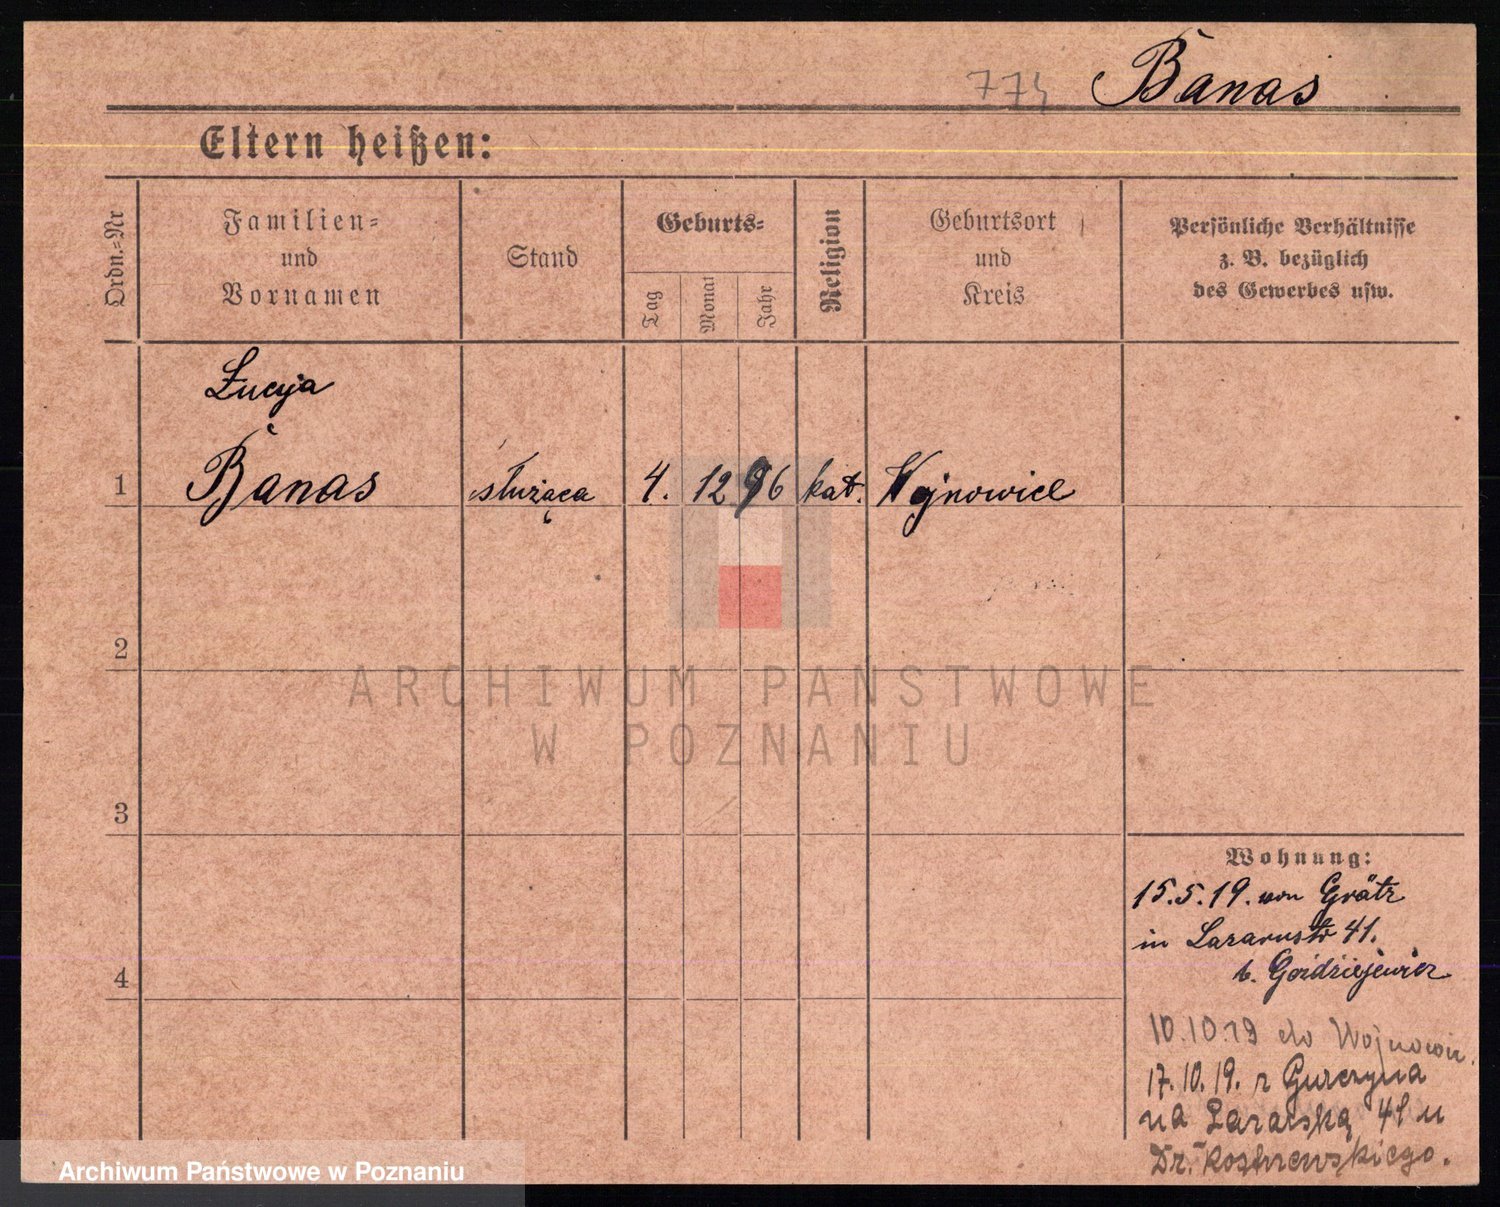 774 Banas
Eltern heißen:
Ordn.=Nr
Familien=
und
Vornamen
Stand
Geburts=
Tag
Monat
Jahr
Religion
Geburtsort
und
Kreis
Persönliche Verhältnisse
z. B. bezüglich
des Gewerbes usw.
Łucyja
1 Banas służąca 4. 12 96 kat. Wojnowice
2
3
4
Wohnung:
15.5.19. von Grätz
in Lazarustr 41.
b. Goździejewicz
10.10.19 do Wojnowic.
17.10.19. z Gurczyna
na Łazarską 41 u
Dr.
ARCHIWUM PAŃSTWOWE
W POZNANIU
Archiwum Państwowe w Poznaniu